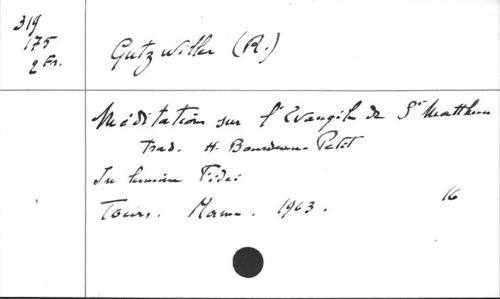 319
175
2 Fr.
Gutzwiller (R.)
Méditation sur l'Evangile de St Matthieu
Trad. H. Bourdeau-Petit
In lumine Fidei
Tours. Mame. 1963. 16